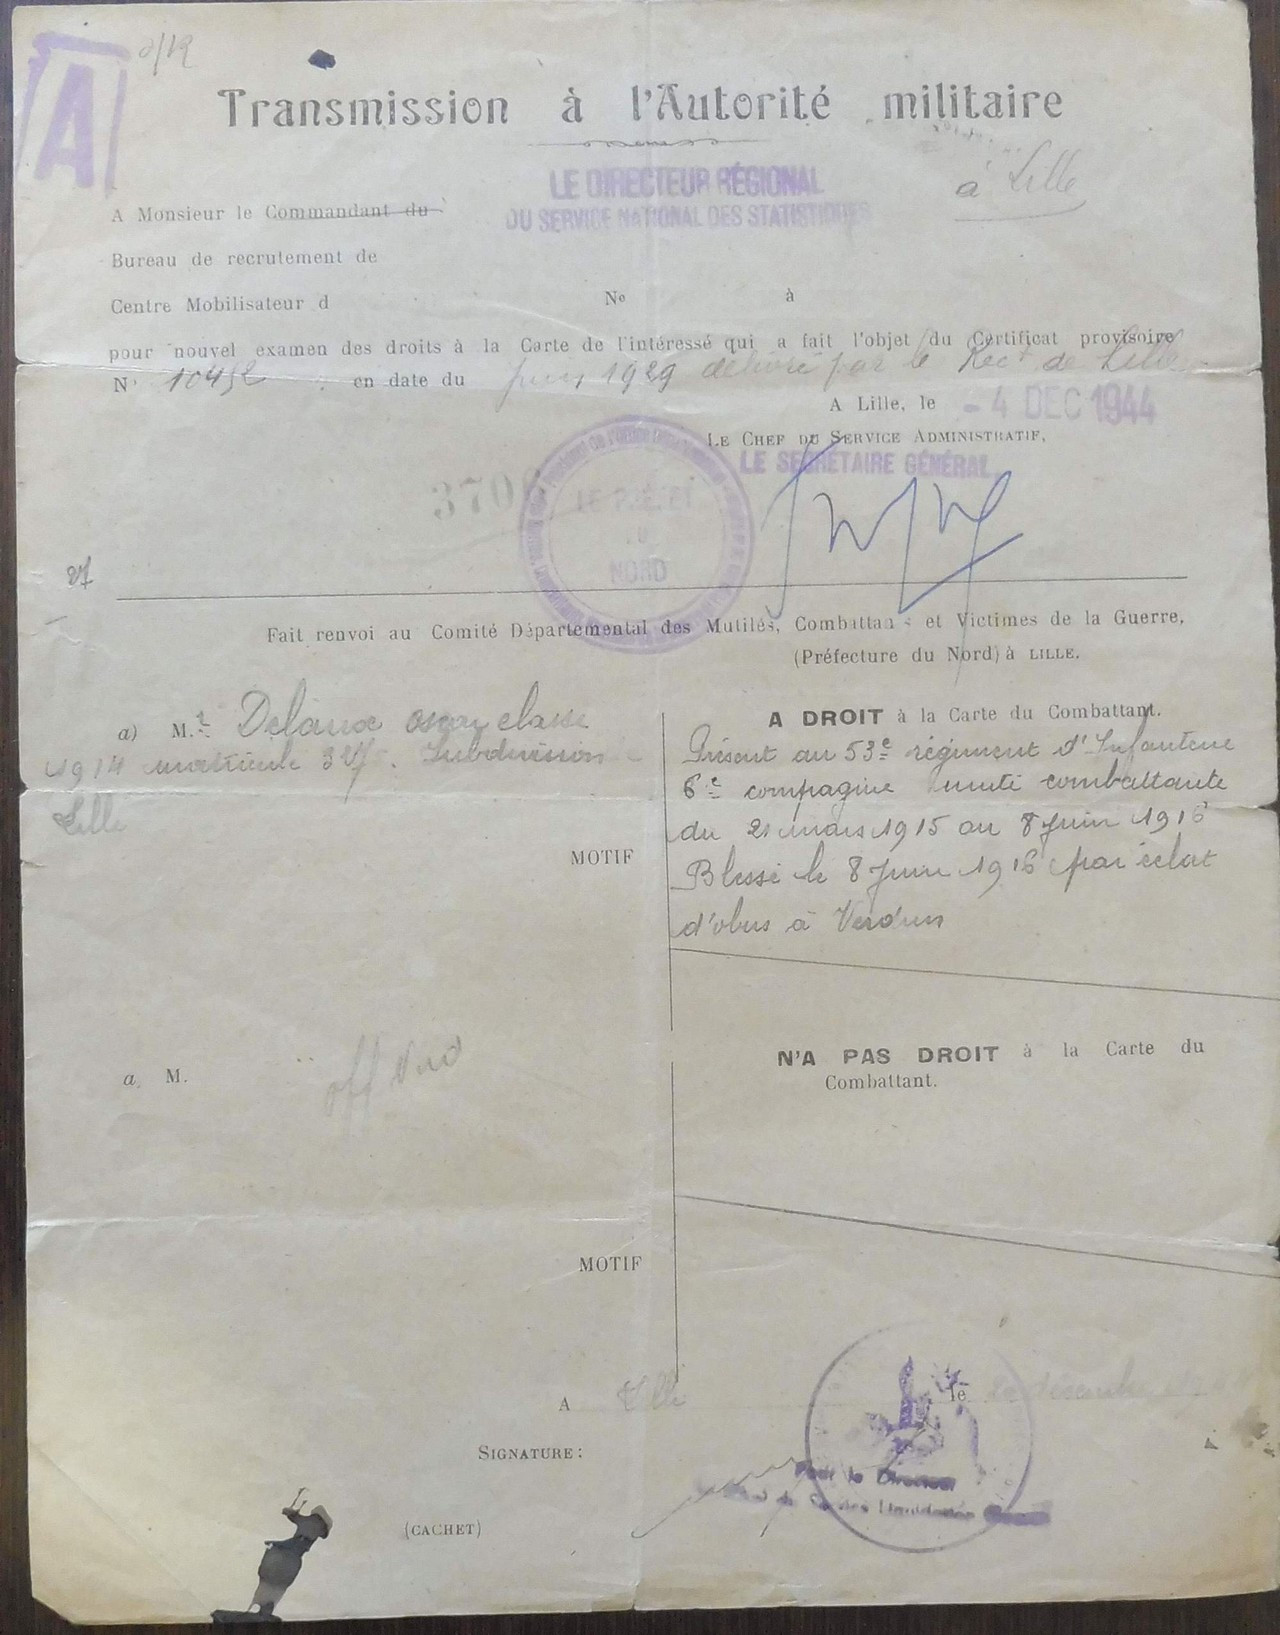 A
Transmission à l'Autorité militaire
LE DIRECTEUR RÉGIONAL
DU SERVICE NATIONAL DES STATISTIQUES
à Lille
A Monsieur le Commandant du
Bureau de recrutement de
Centre Mobilisateur d No à
pour nouvel examen des droits à la Carte de l'intéressé qui a fait l'objet du Certificat provisoire
N° en date du juin 1929 délivré par le Rect de Lille
A Lille, le - 4 DEC 1944
LE CHEF DU SERVICE ADMINISTRATIF,
LE SECRÉTAIRE GÉNÉRAL
LE PRÉFET
DU
NORD
Fait renvoi au Comité Départemental des Mutilés, Combattants et Victimes de la Guerre,
(Préfecture du Nord) à LILLE.
a) M. r classe
1914 matricule Subdivision
Lille
MOTIF
A DROIT à la Carte du Combattant.
Présent au 53e régiment d'Infanterie
6e compagnie unité combattante
du 21 mars 1915 au 8 juin 1916
Blessé le 8 juin 1916 par éclat
d'obus à Verdun
a M.
N'A PAS DROIT à la Carte du
Combattant.
MOTIF
A Lille le décembre
SIGNATURE :
Pour le Directeur
(CACHET)